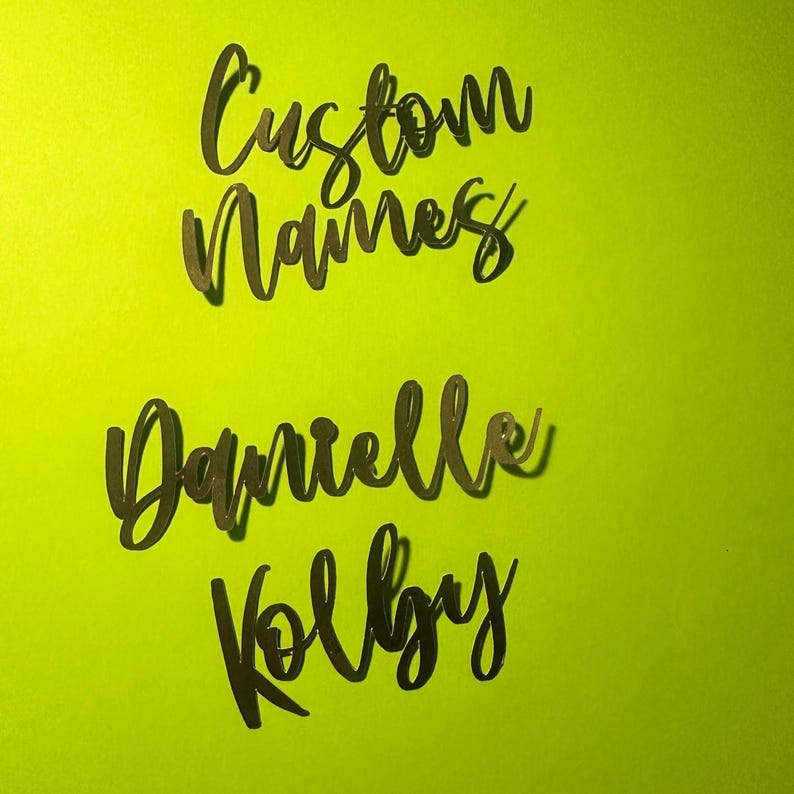 Custom
Names
Danielle
Kolby